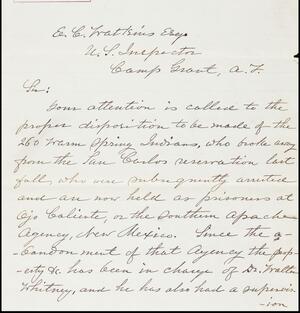 E. C. Watkins Esq
U. S. Inspector
Camp Grant, A. T.
Sir:
Your attention is called to the
proper disposition to be made of the
260 Warm Spring Indians, who broke away
from the San Carlos reservation last
fall, who were subsequently arrested
and are now held as prisoners at
Ojo Caliente, or the Southern Apache
Agency, New Mexico. Since the a-
-bandonment of that Agency the prop-
erty &c. has been in charge of Dr. Walter
Whitney, and he has also had a supervis-
-ion